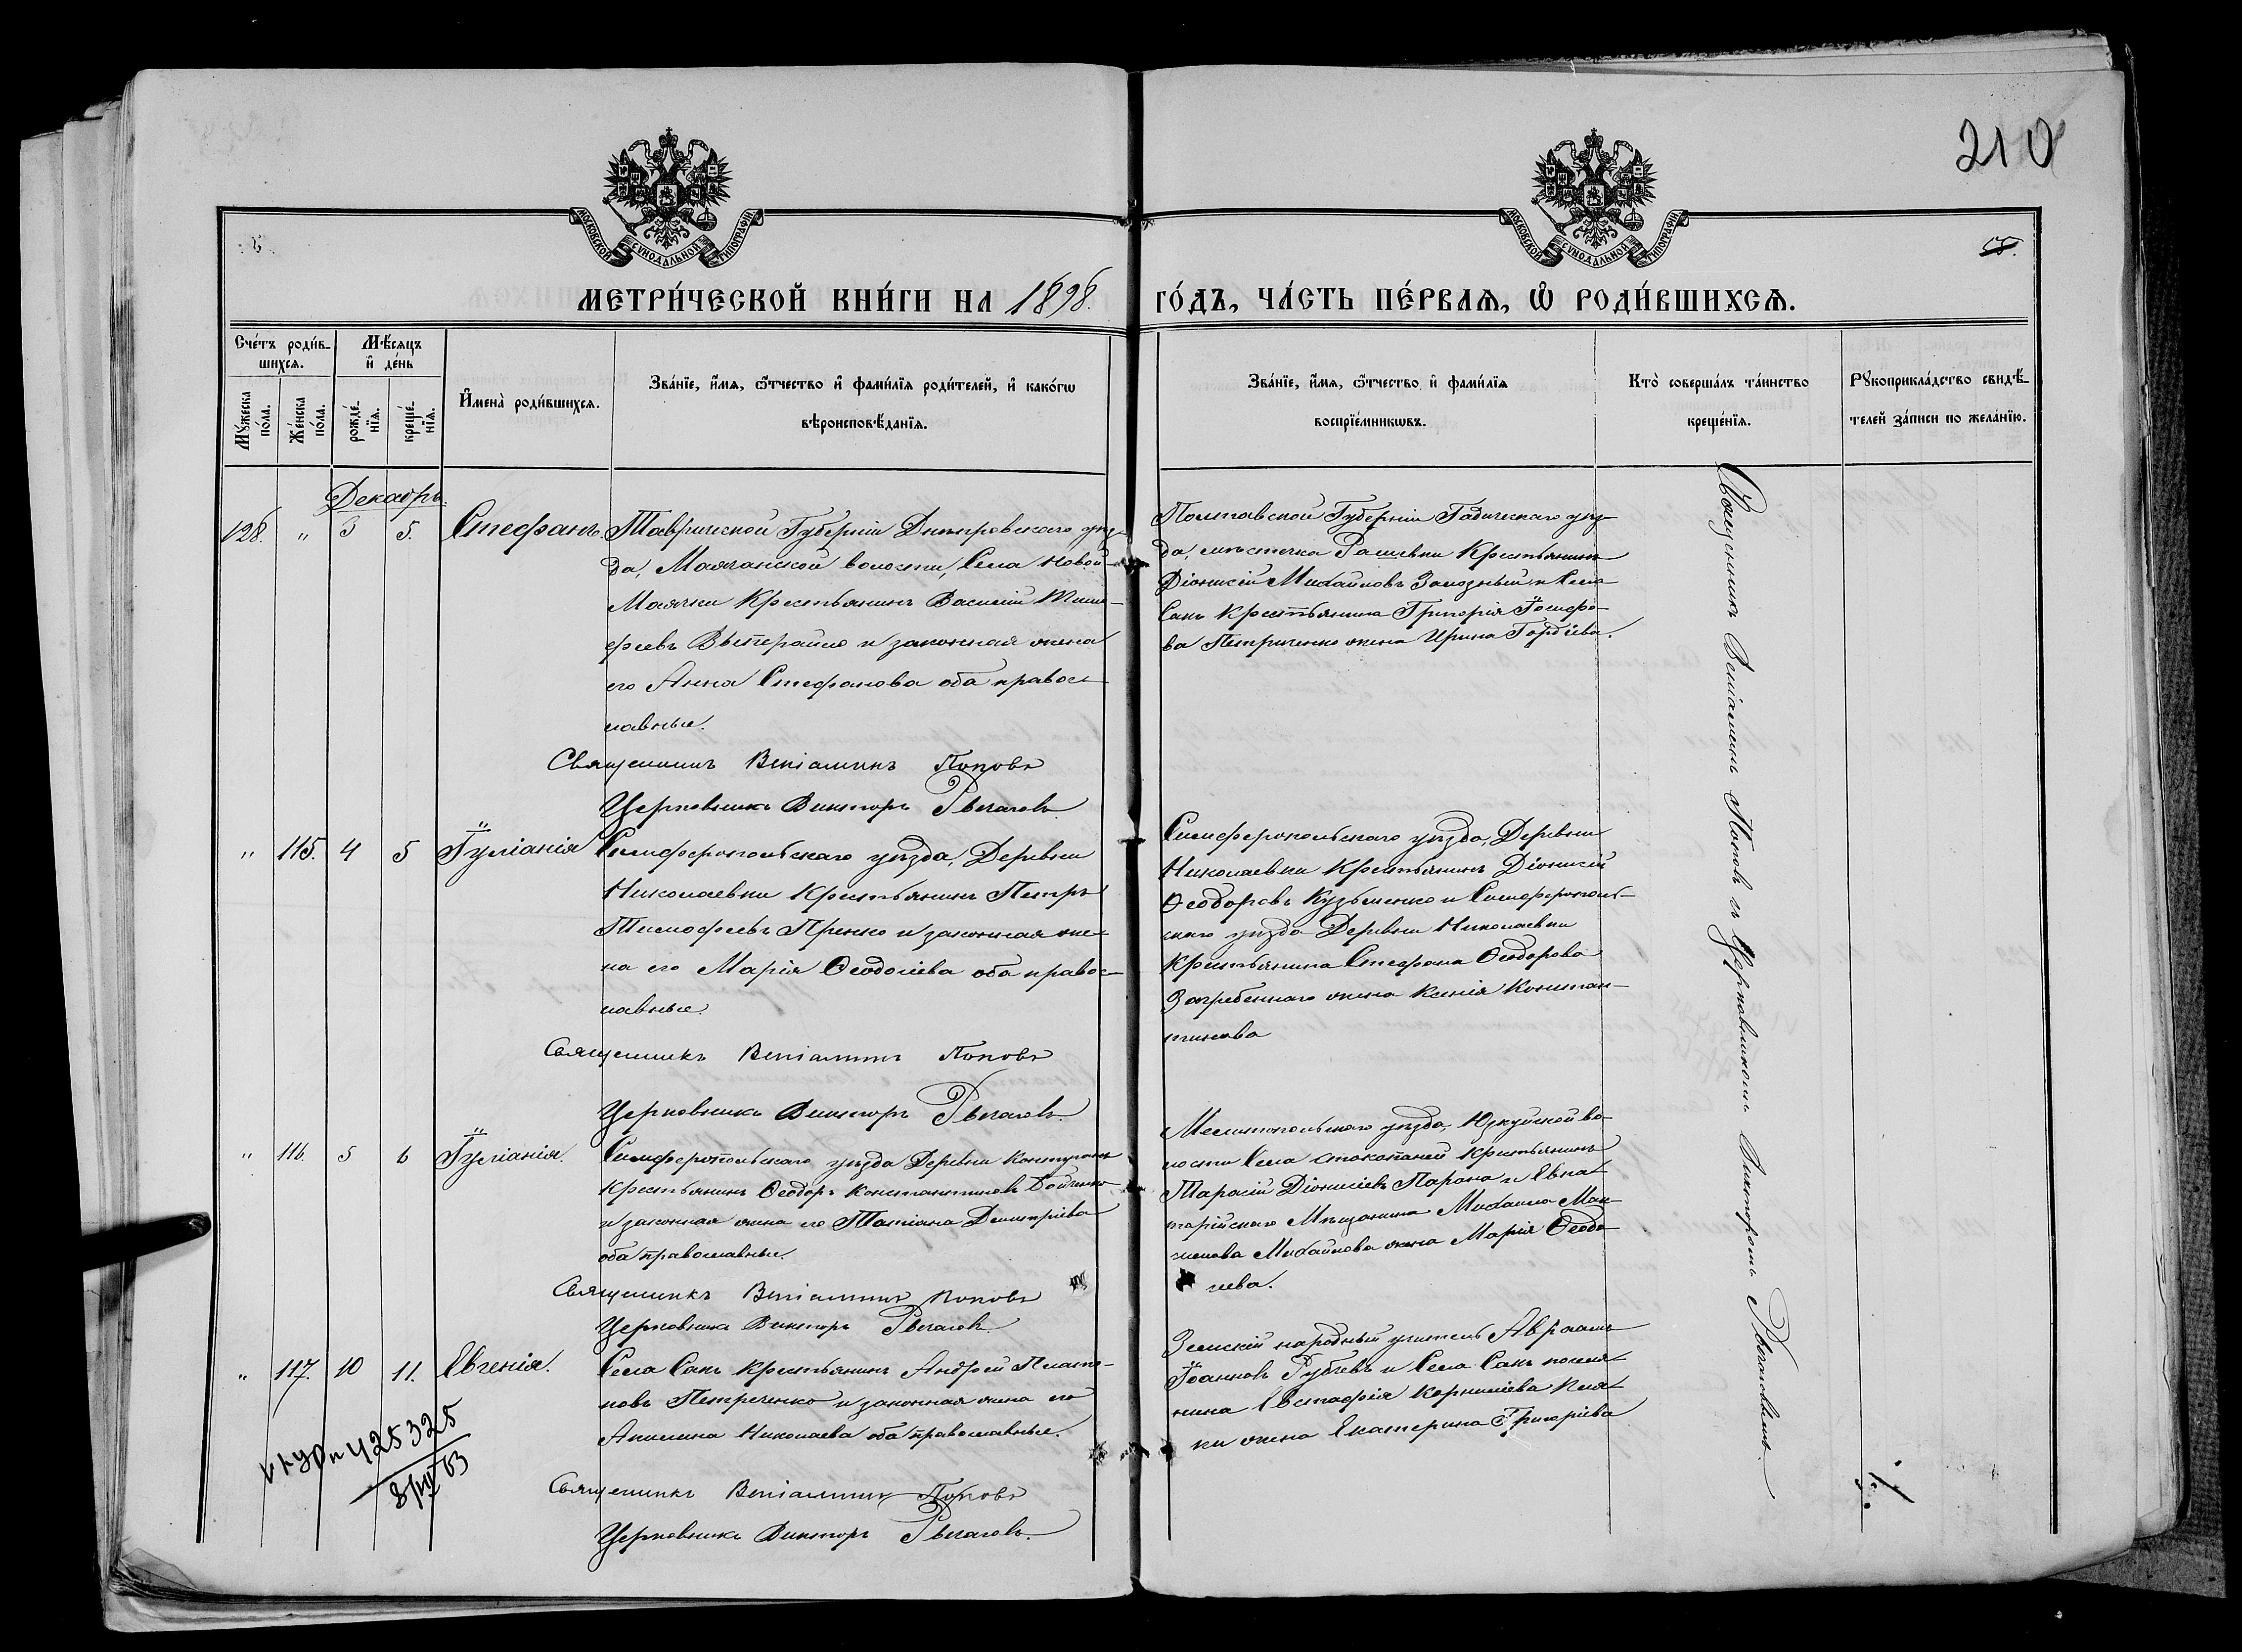 210
МОСКОВСКОЙ СУНОДАЛЬНОЙ ТИПОГРАФІИ
МОСКОВСКОЙ СУНОДАЛЬНОЙ ТИПОГРАФІИ
МЕТРИ́ЧЕСКОЙ КНИ́ГИ НА 1898. ГО́ДЪ, ЧА́СТЬ ПЕ́РВАЯ, Ѡ РОДИ́ВШИХСѦ.
Сче́тъ роди́в-
шихсѧ.
Мꙋ́жеска по́ла.
Же́нска по́ла.
Мѣ́сѧцъ
и҆ де́нь
рожде́-нїѧ.
креще́-нїѧ.
И҆мена̀ роди́вшихсѧ.
Зва́нїе, и҆́мѧ, ѻ҆́тчество и҆ фами́лїѧ роди́телей, и҆ како́гѡ
вѣроисповѣ́данїѧ.
Зва́нїе, и҆́мѧ, ѻ҆́тчество и҆ фами́лїѧ
воспрїе́мникѡвъ.
Кто̀ соверша́лъ та́инство
креще́нїѧ.
Рꙋкоприкла́дство свидѣ́-
телей за́писи по жела́нїю.
Декабрь.
128. " 3 5. Стефанъ.
Таврической Губерніи Днѣпровскаго уѣз-
да, Маячанской волости, Села Новой
Маячки Крестьянинъ Василій Тимо-
феевъ и законная жена
его Анна Стефанова оба правос-
лавные.
Священникъ Веніаминъ Поповъ
Церковникъ Викторъ Рыгаловъ
Полтавской Губерніи Гадяческаго уѣз-
да, мѣстечка Рашевки Крестьянинъ
Діонисій Михайловъ и Села
Сакъ Крестьянина Григорія Іосифо-
ва Петриченко жена Ирина Гордіева.
" 115. 4 5 Іуліанія
Симферопольскаго уѣзда, Деревни
Николаевки Крестьянинъ Петръ
Тимофеевъ и законная же-
на его Марія Ѳеодосіева оба правос-
лавные.
Священникъ Веніаминъ Поповъ
Церковникъ Викторъ Рыгаловъ
Симферопольскаго уѣзда, Деревни
Николаевки Крестьянинъ Діонисій
Ѳеодоровъ Кузьменко и Симферополь-
скаго уѣзда Деревни Николаевки
Крестьянина Стефана Ѳеодорова
Загребеннаго жена Ксенія Констан-
тинова
" 116. 5 6 Іуліанія.
Симферопольскаго уѣзда Деревни
Крестьянинъ Ѳеодоръ Константиновъ Бойченко
и законная жена его Татіана Димитріева
оба православные.
Священникъ Веніаминъ Поповъ
Церковникъ Викторъ Рыгаловъ
Мелитопольскаго уѣзда, Юзкуйской во-
лости Села Стокопаней Крестьянинъ
Тарасій Діонисіевъ и Евпа-
торійскаго Мѣщанина Михаила Мак-
симова Михайлова жена Марія Ѳеодо-
сіева.
" 117. 10 11. Евгенія.
Села Сакъ Крестьянинъ Андрей Плато-
новъ Петреченко и законная жена его
Акилина Николаева оба православные.
Священникъ Веніаминъ Поповъ
Церковникъ Викторъ Рыгаловъ
Земскій народный учитель Авраамъ
Іоанновъ Рубцевъ и Села Сакъ поселя-
нина Евстафія Корниліева
жена Екатерина Григоріева
Священникъ Веніаминъ Поповъ съ Церковникомъ Викторомъ Рыгаловымъ.
425325